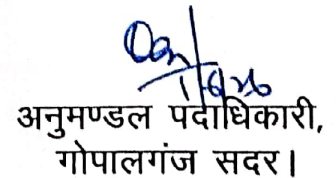 अनुमण्डल पदाधिकारी,
गोपालगंज सदर।